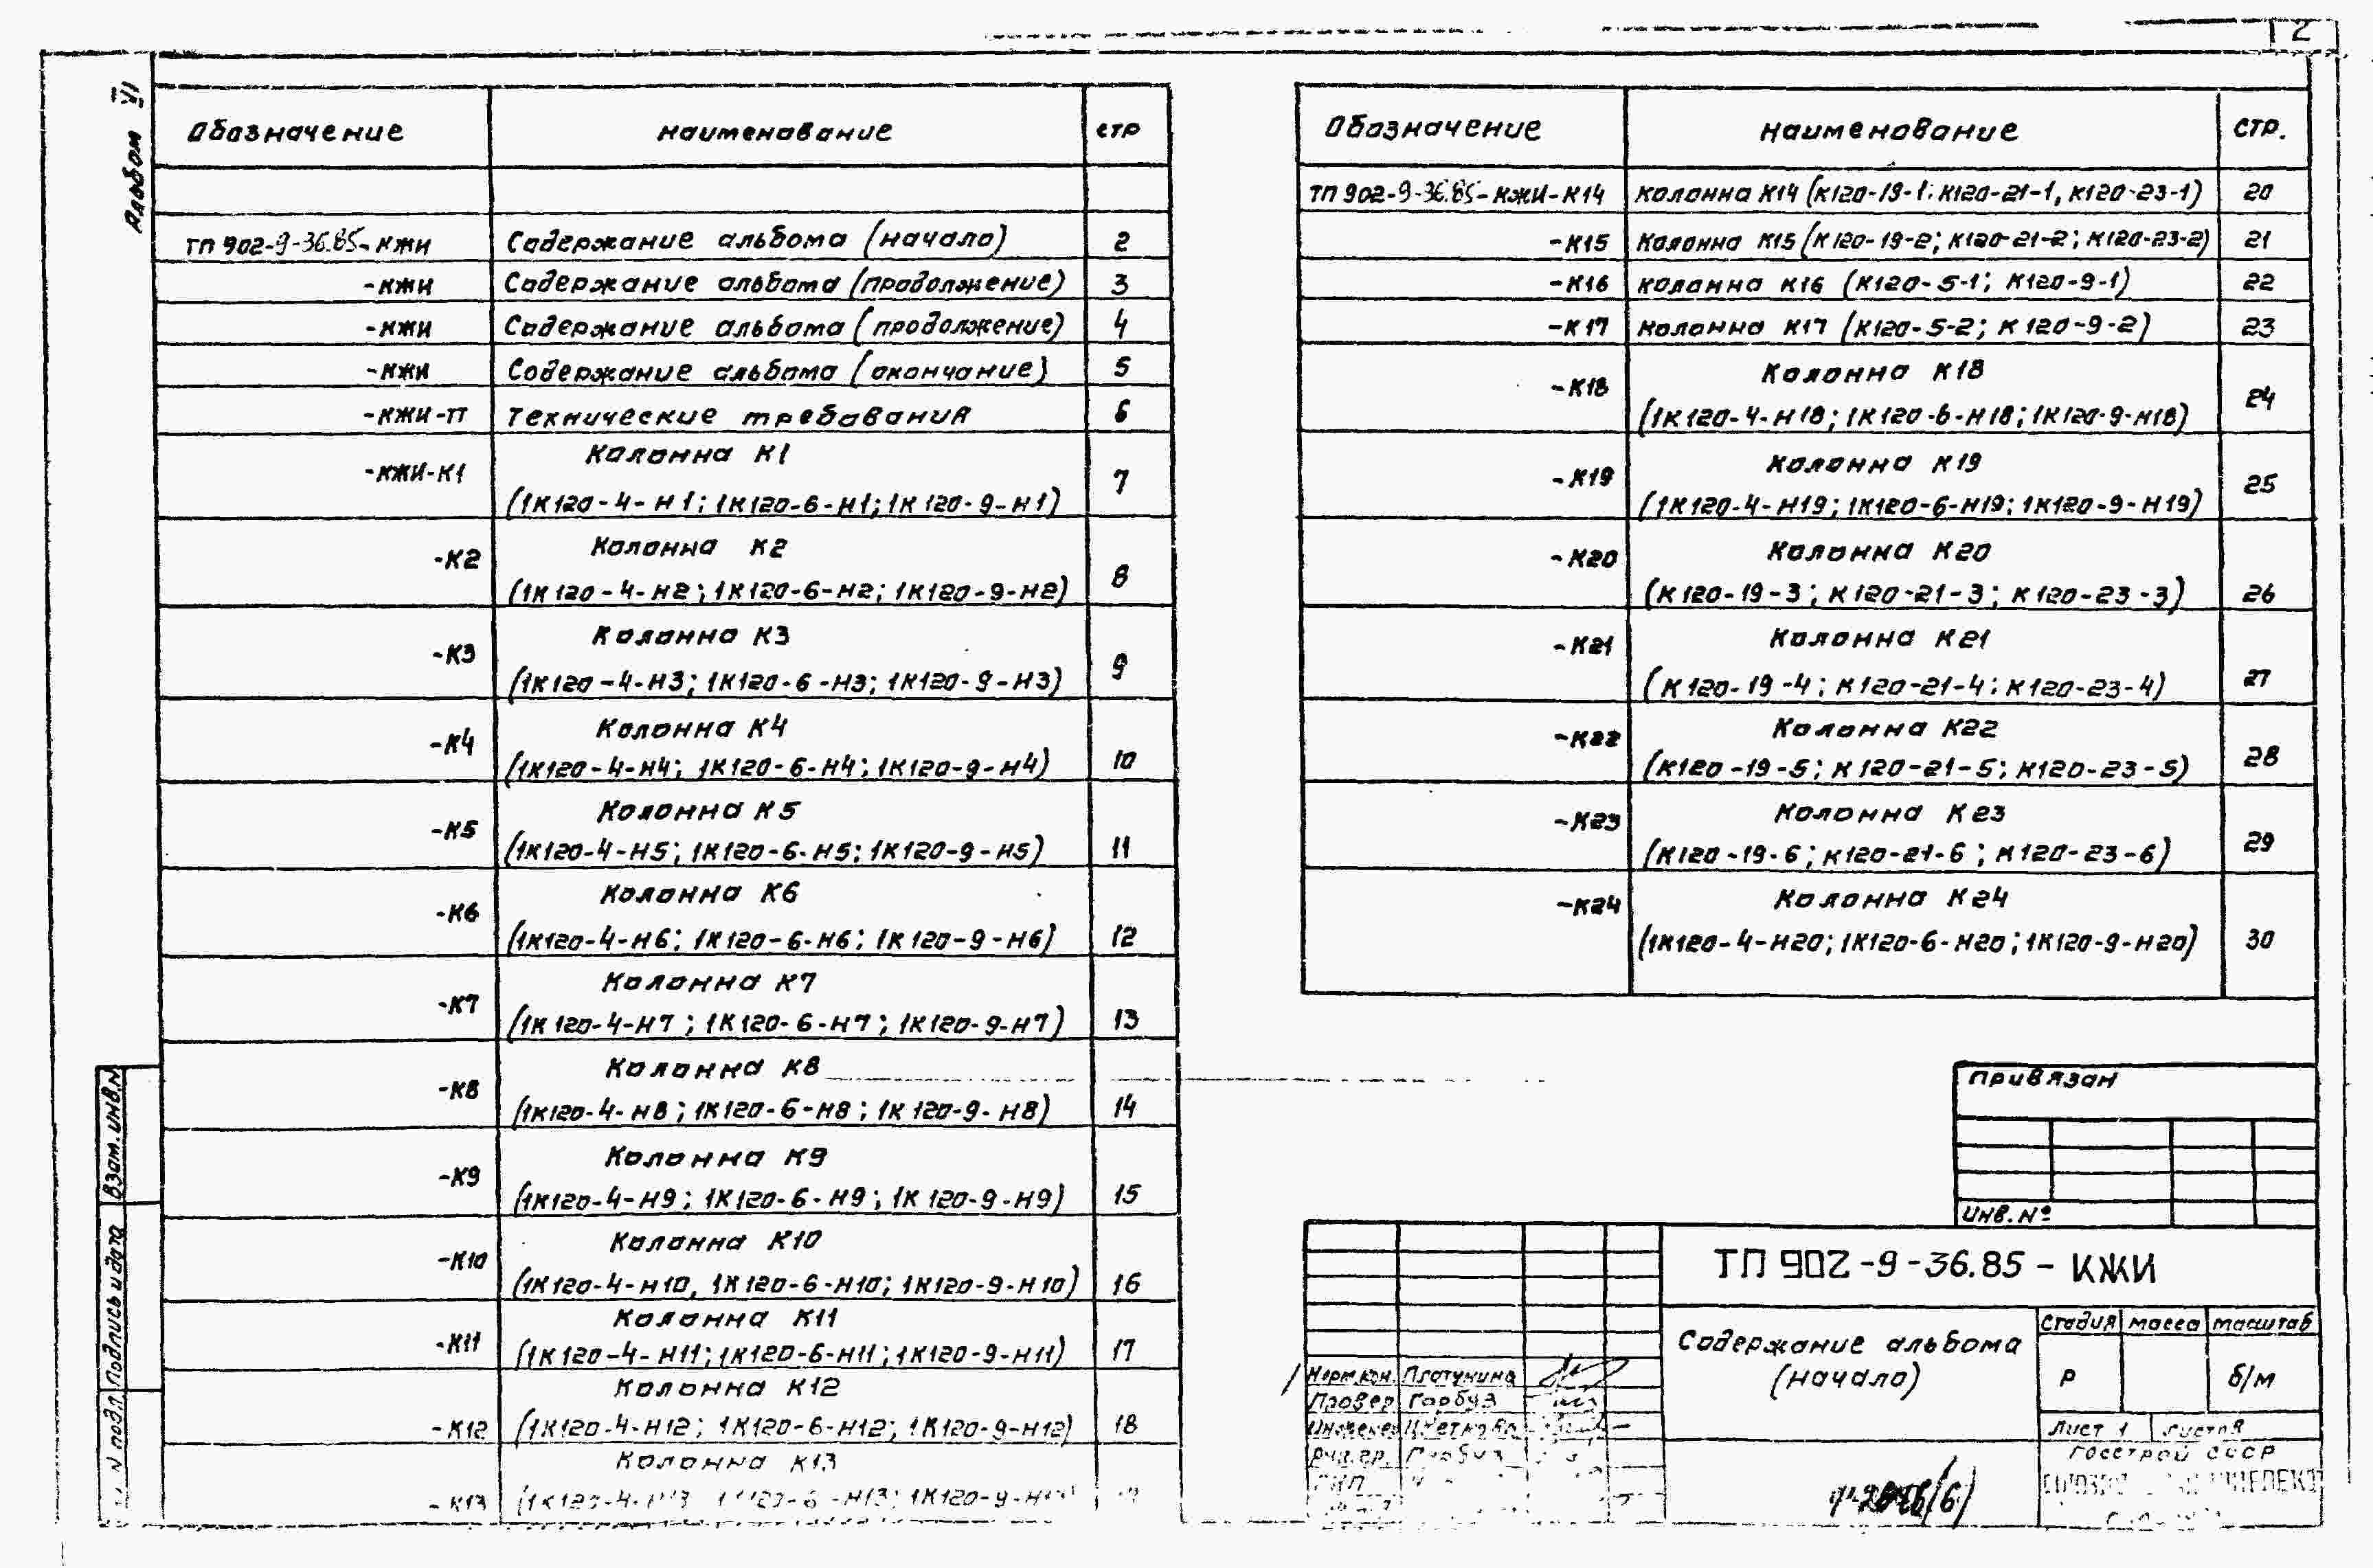 2
Альбом VI
Обозначение наименование стр
ТП 902-9-36.85-КЖИ Содержание альбома (начало) 2
-КЖИ Содержание альбома (продолжение) 3
-КЖИ Содержание альбома (продолжение) 4
-КЖИ Содержание альбома (окончание) 5
-КЖИ-ТТ Технические требования 6
-КЖИ-К1 Колонна К1
(1К120-4-Н1; 1К120-6-Н1; 1К120-9-Н1) 7
-К2 Колонна К2
(1К120-4-Н2; 1К120-6-Н2; 1К120-9-Н2) 8
-К3 Колонна К3
(1К120-4-Н3; 1К120-6-Н3; 1К120-9-Н3) 9
-К4 Колонна К4
(1К120-4-Н4; 1К120-6-Н4; 1К120-9-Н4) 10
-К5 Колонна К5
(1К120-4-Н5; 1К120-6-Н5; 1К120-9-Н5) 11
-К6 Колонна К6
(1К120-4-Н6; 1К120-6-Н6; 1К120-9-Н6) 12
-К7 Колонна К7
(1К120-4-Н7; 1К120-6-Н7; 1К120-9-Н7) 13
-К8 Колонна К8
(1К120-4-Н8; 1К120-6-Н8; 1К120-9-Н8) 14
-К9 Колонна К9
(1К120-4-Н9; 1К120-6-Н9; 1К120-9-Н9) 15
-К10 Колонна К10
(1К120-4-Н10, 1К120-6-Н10; 1К120-9-Н10) 16
-К11 Колонна К11
(1К120-4-Н11; 1К120-6-Н11; 1К120-9-Н11) 17
Колонна К12
-К12 (1К120-4-Н12; 1К120-6-Н12; 1К120-9-Н12) 18
Колонна К13
-К13 (1К120-4-Н13 1К120-6-Н13; 1К120-9-Н13)
Обозначение наименование стр.
ТП 902-9-36.85-КЖИ-К14 колонна К14 (К120-19-1; К120-21-1, К120-23-1) 20
-К15 Колонна К15 (К120-19-2; К120-21-2; К120-23-2) 21
-К16 колонна К16 (К120-5-1; К120-9-1) 22
-К17 Колонна К17 (К120-5-2; К120-9-2) 23
-К18 Колонна К18
(1К120-4-Н18; 1К120-6-Н18; 1К120-9-Н18) 24
-К19 Колонна К19
(1К120-4-Н19; 1К120-6-Н19; 1К120-9-Н19) 25
-К20 Колонна К20
(К120-19-3; К120-21-3; К120-23-3) 26
-К21 Колонна К21
(К120-19-4; К120-21-4; К120-23-4) 27
-К22 Колонна К22
(К120-19-5; К120-21-5; К120-23-5) 28
-К23 Колонна К23
(К120-19-6; К120-21-6; К120-23-6) 29
-К24 Колонна К24
(1К120-4-Н20; 1К120-6-Н20; 1К120-9-Н20) 30
Привязан
Инв. №
ТП 902-9-36.85-КЖИ
Содержание альбома
(начало)
Стадия масса масштаб
Р б/м
Лист 1 Листов
Госстрой СССР
Норм.кон. Платунина
Провер Гарбуз
Инженер Цветкова
Рук.гр. Гарбуз
ГИП
Взам. инв. N
Подпись и дата
N подл